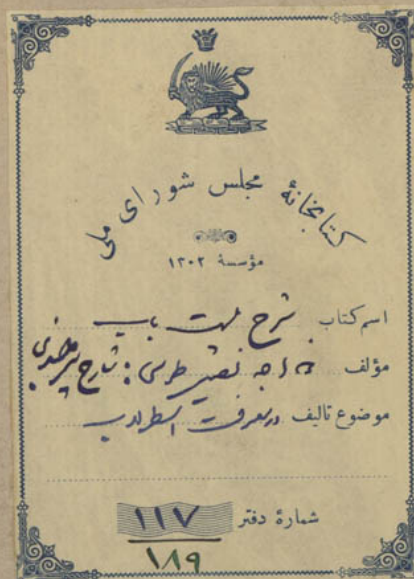 کتابخانهٔ مجلس شورای ملی
مؤسسهٔ ۱۳۰۲
اسم کتاب شرح بیست باب
مؤلف خواجه نصیر طوسی : شارح بیرجندی
موضوع تالیف در معرفت اسطرلاب
شمارهٔ دفتر ۱۱۷
۱۸۹